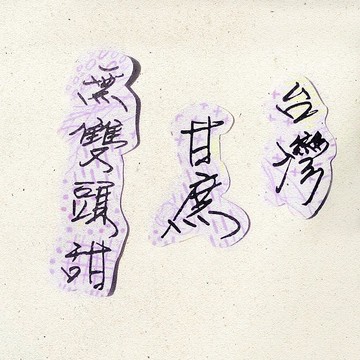 台灣
甘蔗
無雙頭甜